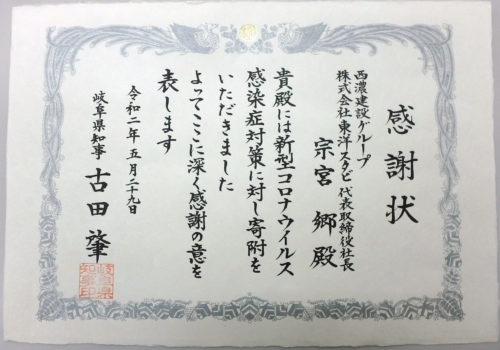 感謝状
西濃建設グループ
株式会社東洋スタビ 代表取締役社長
宗宮 郷殿
貴殿には新型コロナウイルス
感染症対策に対し寄附を
いただきました
よってここに深く感謝の意を
表します
令和二年五月二十九日
岐阜県知事 古田 肇
岐阜県
知事印